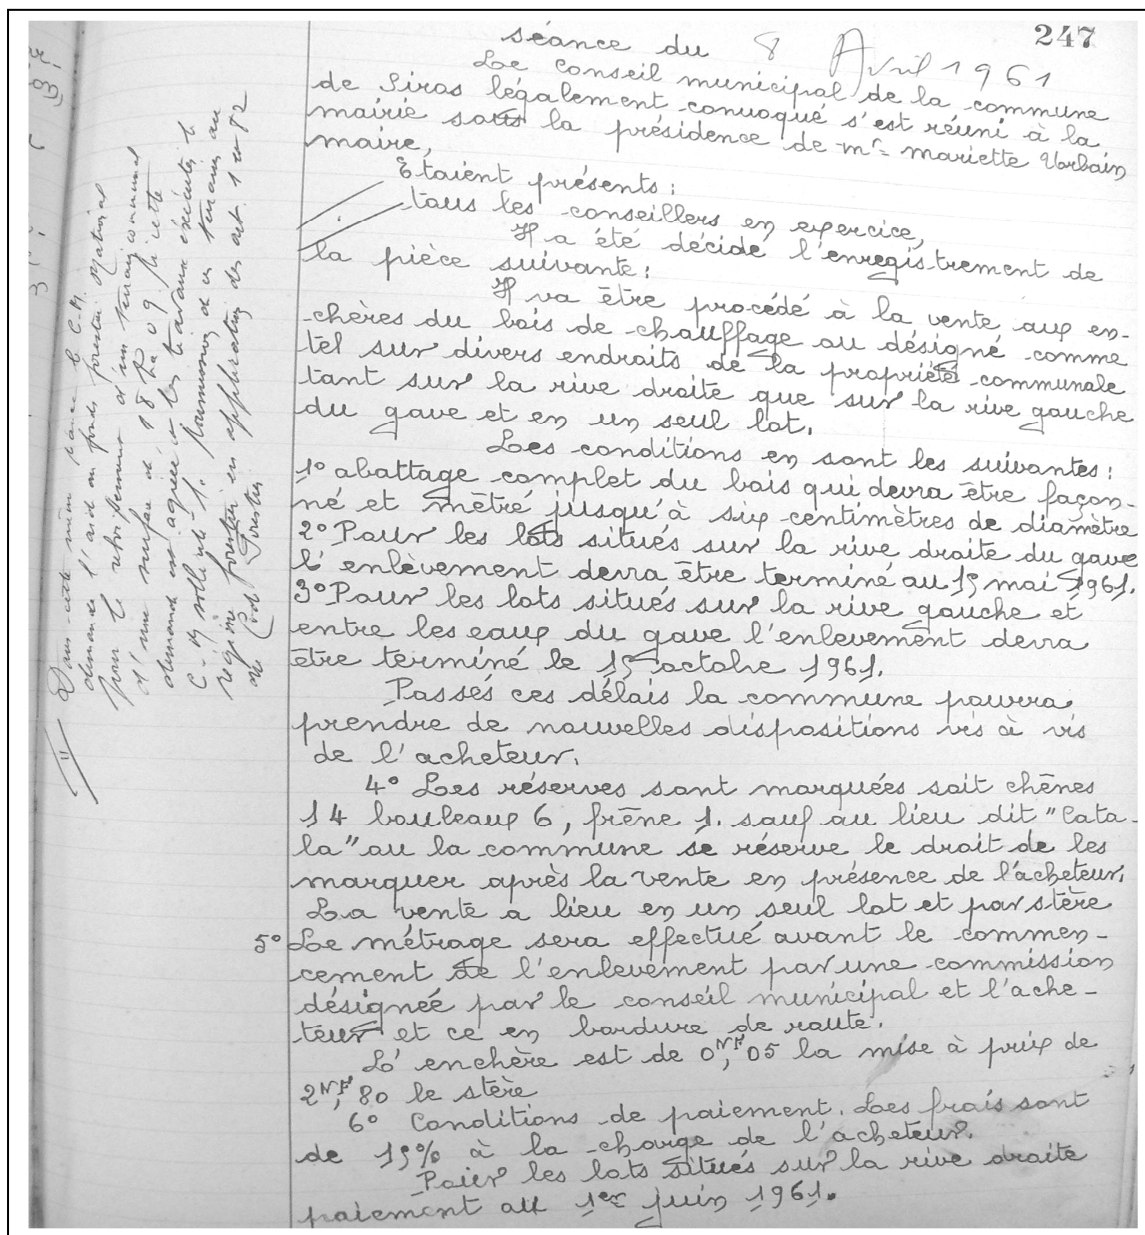 247
séance du 8 Avril 1961
Le conseil municipal de la commune
de Siros légalement convoqué s'est réuni à la
mairie sous la présidence de mr Mariette Urbain
maire,
Etaient présents :
tous les conseillers en exercice,
Il a été décidé l'enregistrement de
la pièce suivante :
Il va être procédé à la vente aux en-
chères du bois de chauffage ou désigné comme
tel sur divers endroits de la propriété communale
tant sur la rive droite que sur la rive gauche
du gave et en un seul lot.
Les conditions en sont les suivantes :
1° abattage complet du bois qui devra être façon-
né et mêtré jusqu'à six centimètres de diamètre
2° Pour les lots situés sur la rive droite du gave
l'enlèvement devra être terminé au 15 mai 1961.
3° Pour les lots situés sur la rive gauche et
entre les eaux du gave l'enlevement devra
être terminé le 15 octobre 1961.
Passés ces délais la commune pourra
prendre de nouvelles dispositions vis à vis
de l'acheteur.
4° Les réserves sont marquées soit chênes
14 bouleaux 6, frêne 1. sauf au lieu dit "Cata-
la" ou la commune se réserve le droit de les
marquer après la vente en présence de l'acheteur.
La vente a lieu en un seul lot et par stère
5° Le métrage sera effectué avant le commen-
cement de l'enlevement par une commission
désignée par le conseil municipal et l'ache-
teur et ce en bordure de route.
L'enchère est de 0NF,05 la mise à prix de
2NF,80 le stère
6° Conditions de paiement. Les frais sont
de 15% à la charge de l'acheteur.
Pour les lots situés sur la rive droite
paiement au 1er juin 1961.
Dans cette même séance le C.M.
demande l'aide au fonds forestier National
pour le reboisement d'un terrain communal
d'une surface de 18 ha 09 si cette
demande est agréée et les travaux exécutés le
C.M. sollicite la soumission de ces terrains au
régime forestier en application des art. 1 et 82
du Code Forestier